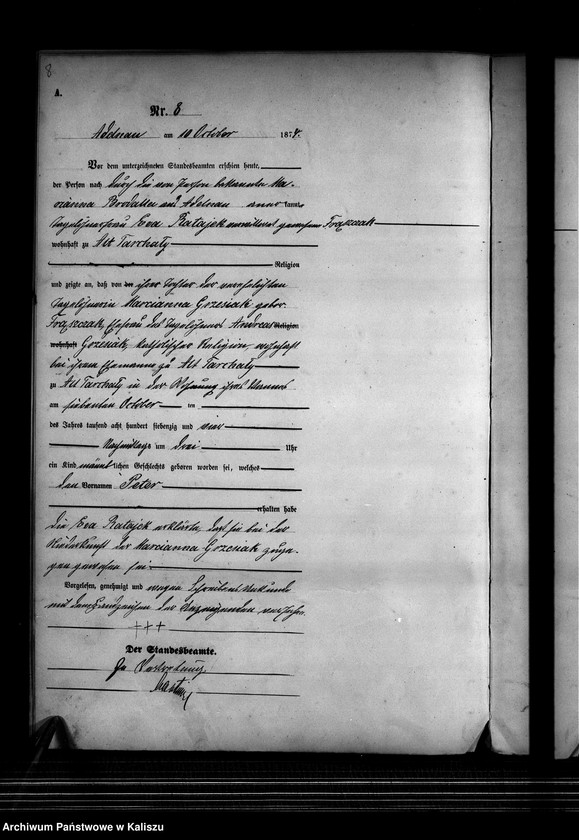 8
A.
Nr. 8
Adelnau am 10 October 1874.
Vor dem unterzeichneten Standesbeamten erschien heute,
der Person nach durch die von Person bekannte Ma-
rianna aus Adelnau aner kannt,
Tagelöhnerfrau Eva Ratajek gewesene Frąszczak
wohnhaft zu Alt Tarchaly
Religion
und zeigte an, daß von der ihrer Tochter der verehelichten
Tagelöhnerin Marcianna Grzesiak gebor.
Frąszczak, Ehefrau des Tagelöhners Andreas Religion
wohnhaft Grzesiak, katholischer Religion, wohnhaft
bei ihrem Ehemanne zu Alt Tarchaly
zu Alt Tarchaly in der Wohnung ihres Mannes
am siebenten October ten
des Jahres tausend acht hundert siebenzig und vier
Nachmittags um drei Uhr
ein Kind männlichen Geschlechts geboren worden sei, welches
den Vornamen Peter
erhalten habe
Die Eva Ratajek erklärte, daß sie bei der
Niederkunft der Marcianna Grzesiak zuge-
gen gewesen sei.
Vorgelesen, genehmigt und wegen Schreibens Unkunde
mit dem Handzeichen der Anzeigenden versehen.
+++
Der Standesbeamte.
In Vertretung
Archiwum Państwowe w Kaliszu